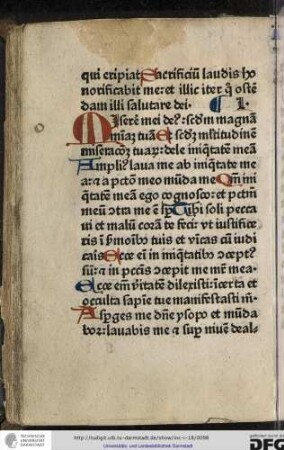 qui eripiat Sacrificiū laudis ho
norificabit me: et illic iter q̄ oſtē
dam illi salutare dei. L
Miserē mei deꝰ: ſcd̄m magnā
mīaꝫ tuā Et ſcd̄ꝫ mītitudinē
miseracoꝝ tuaꝝ: dele iniq̄tatē meā
Ampliꝰ laua me ab iniq̄tate me
a: ⁊ a pctō meo mūda me Qm̄ ini
q̄tatē meā ego cognosco: et pctm̄
meū ↄtra me ē sp̄ Tibi soli pecca
ui et malū corā te feci: vt iustifice
ris ī ẜmoībꝰ tuis et vīcas cū iudi
caris Ecce em̄ in iniq̄tatibꝰ ↄcept⁹
sū: ⁊ in pccīs ↄcepit me mr̄ mea
Ecce em̄ v̄itatē dilexisti: īcerta et
occulta sapīe tue manifestasti m̄
Aspges me dn̄e ysopo et mūda
boꝛ: lauabis me ⁊ sup̄ niuē deal-
http://tudigit.ulb.tu-darmstadt.de/show/inc-ii-18/0098
Universitäts- und Landesbibliothek Darmstadt
DFG